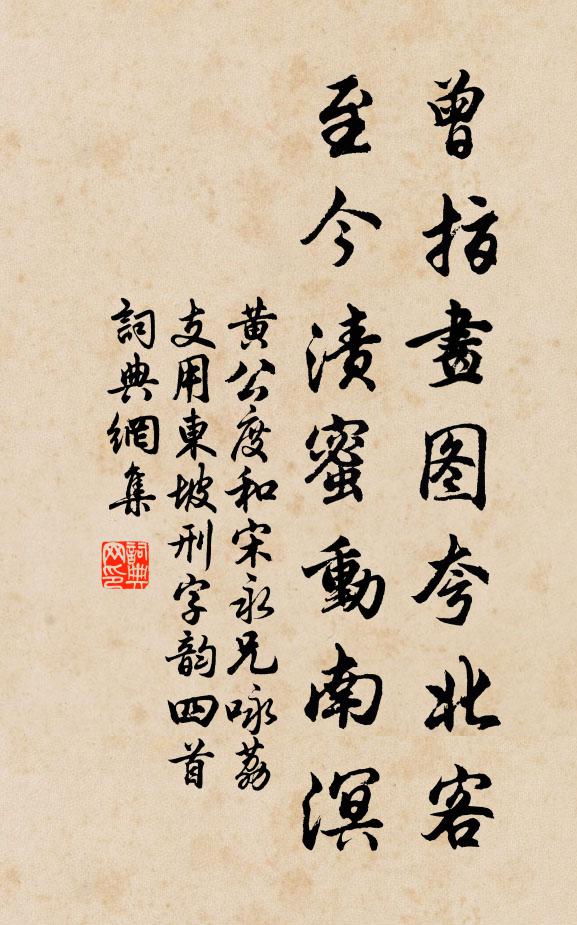 曾指畫图夸北客
至今漬蜜動南溟
黄公度和宋永兄咏荔
支用東坡刑字韵四首
詞典網集
詞典网印